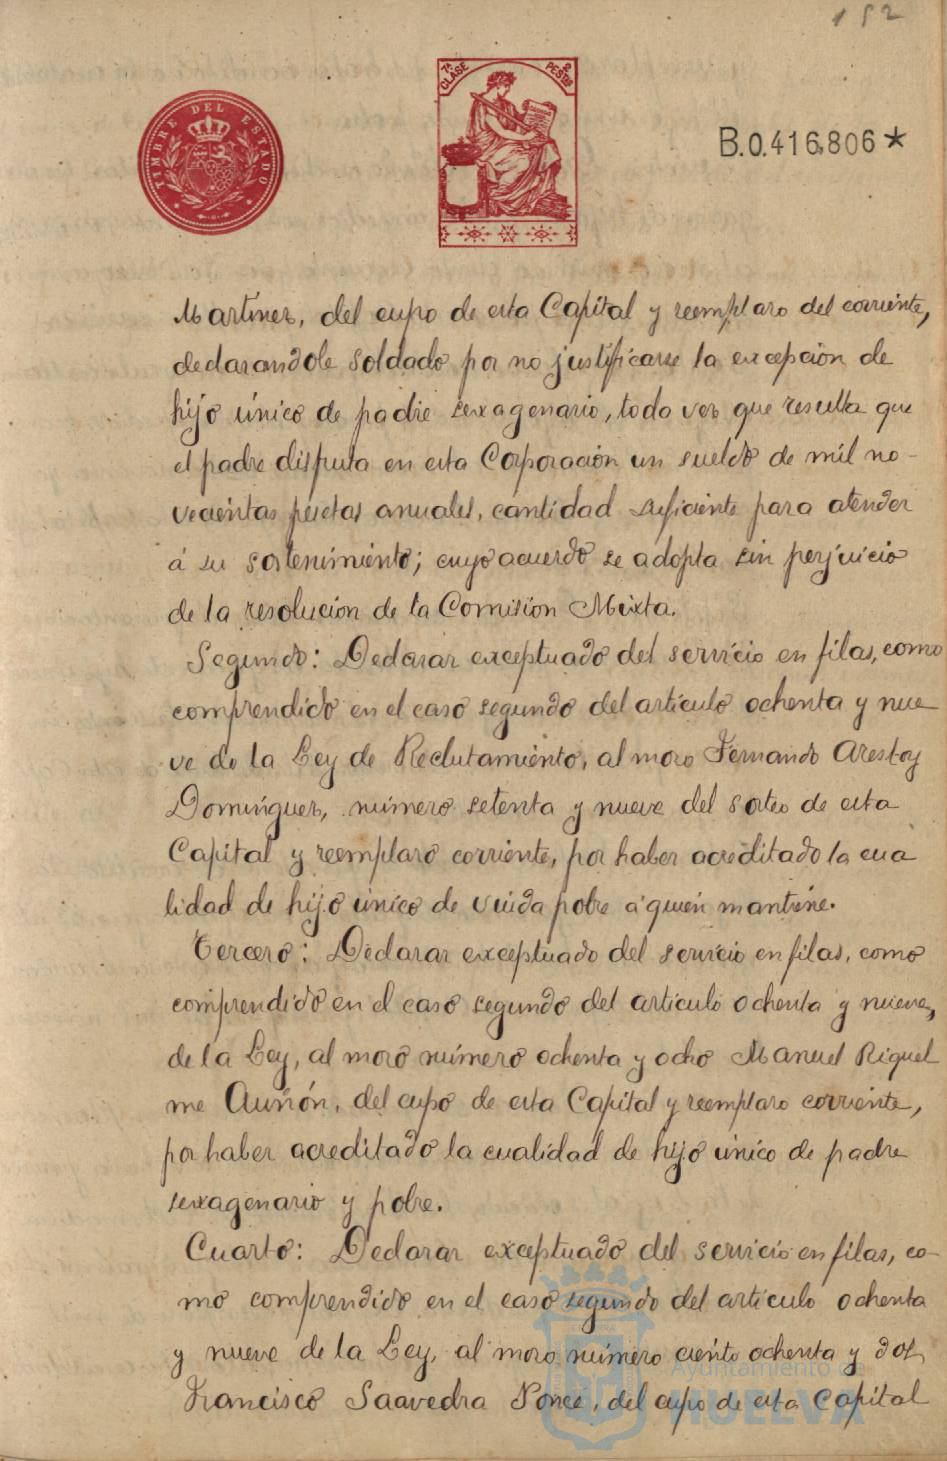 152
TIMBRE DEL ESTADO
7ª CLASE
2 PESTAS
B.0.416,806 *
Martinez, del cupo de esta Capital y reemplazo del corriente,
declarandole soldado por no justificarse la excepción de
hijo único de padre sexagenario, toda vez que resulta que
el padre disfruta en esta Corporación un sueldo de mil no-
vecientas pesetas anuales, cantidad suficiente para atender
á su sostenimiento; cuyo acuerdo se adopta sin perjuicio
de la resolución de la Comisión Mixta.
Segundo: Declarar exceptuado del servicio en filas, como
comprendido en el caso segundo del artículo ochenta y nue
ve de la Ley de Reclutamiento, al mozo Fernando Arestoy
Dominguez, número setenta y nueve del sorteo de esta
Capital y reemplazo corriente, por haber acreditado la cua
lidad de hijo único de viuda pobre á quien mantiene.
Tercero: Declarar exceptuado del servicio en filas, como
comprendido en el caso segundo del artículo ochenta y nueve,
de la Ley, al mozo número ochenta y ocho Manuel Riquel
me Auñón, del cupo de esta Capital y reemplazo corriente,
por haber acreditado la cualidad de hijo único de padre
sexagenario y pobre.
Cuarto: Declarar exceptuado del servicio en filas, co-
mo comprendido en el caso segundo del artículo ochenta
y nueve de la Ley, al mozo número ciento ochenta y dos
Francisco Saavedra Ponce, del cupo de esta Capital
Ayuntamiento de
HUELVA